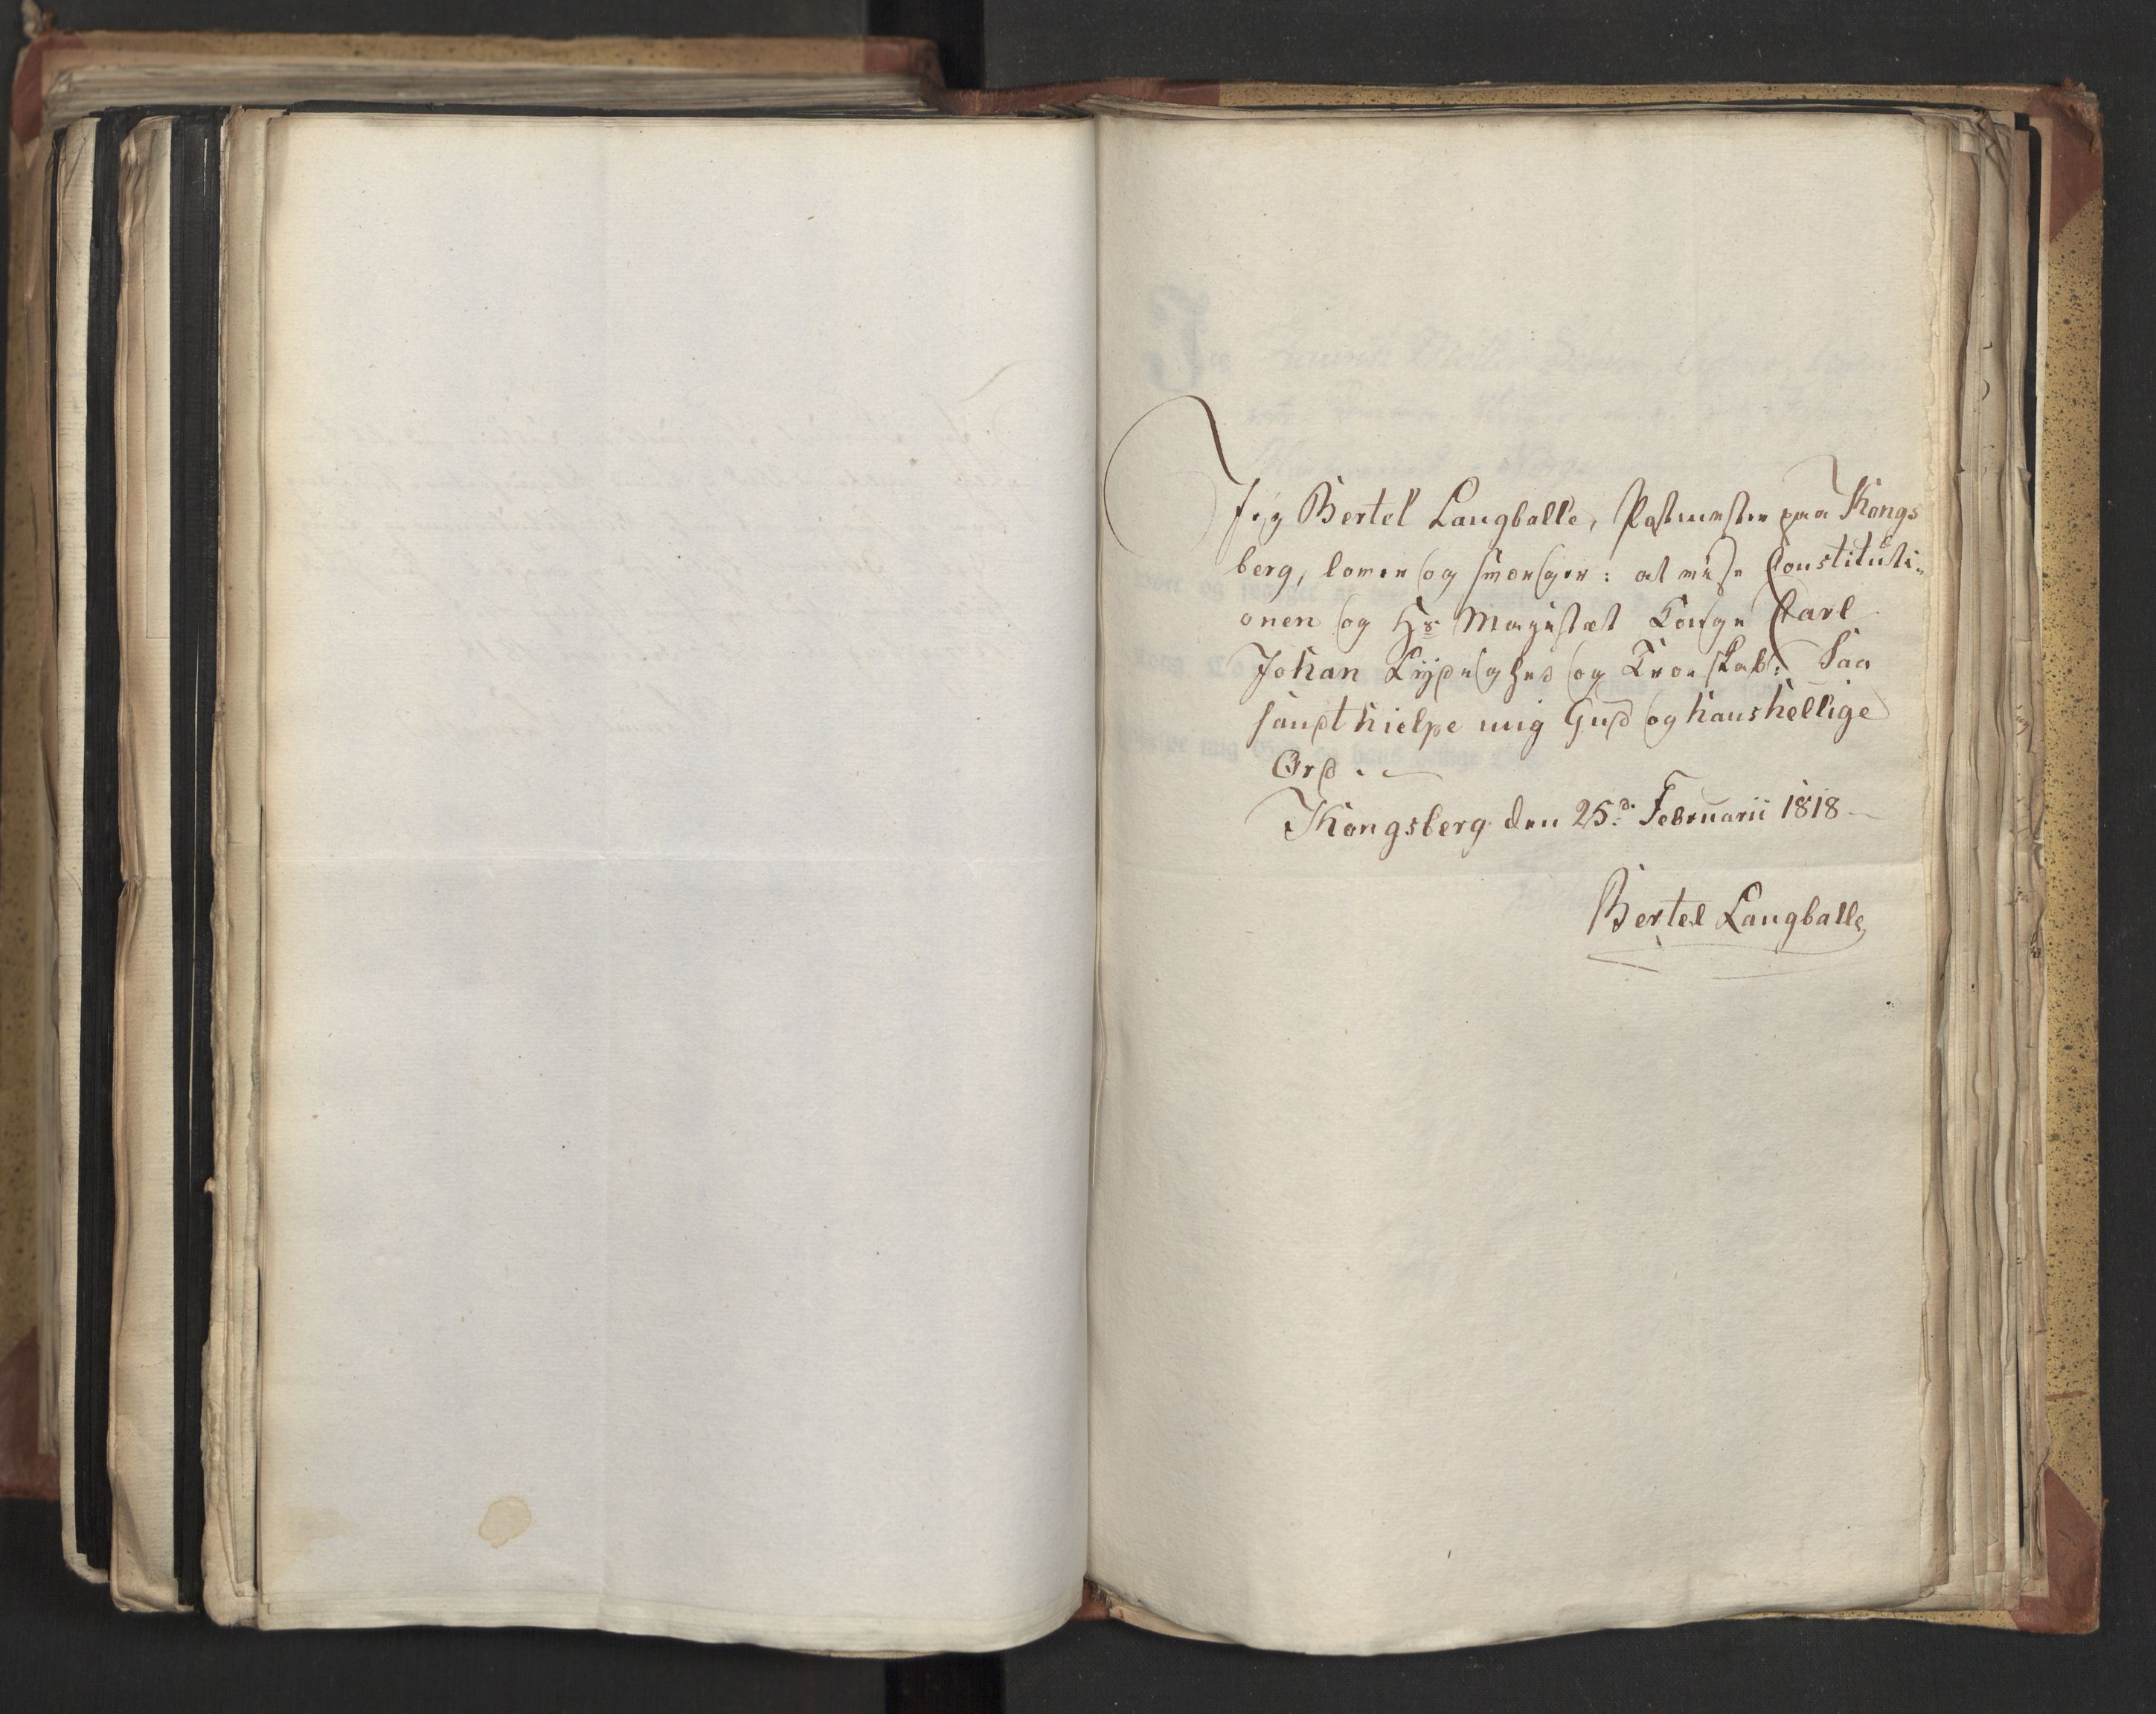 Jeg Bertel Langballe, Postmester paa Kongs
berg, lover og sværger: at vise Constituti-
onen og Hs Majestæt Konge Carl
Johan Lydighed og Troeskab: Saa
sandt hielpe mig Gud og hans hellige
Ord.
Kongsberg den 25d. Februarii 1818
Bertel Langballe